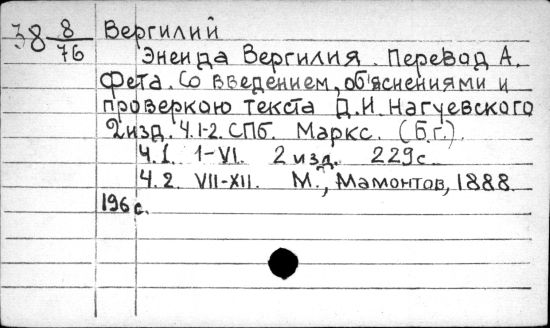 38 8/76 Вергилий
Энеида Вергилия. Перевод А.
Фета. Со введением, объяснениями и
проверкою текста Д.И. Нагуевского
2изд. Ч.1-2. СПб. Маркс. (б.г.).
Ч.1. I-VI. 2 изд. 229с.
Ч.2. VII-XII. М., Мамонтов, 1888.
196 с.